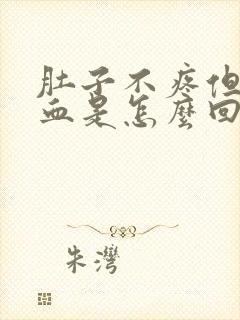 肚子不疼但
血是怎麼回
朱灣